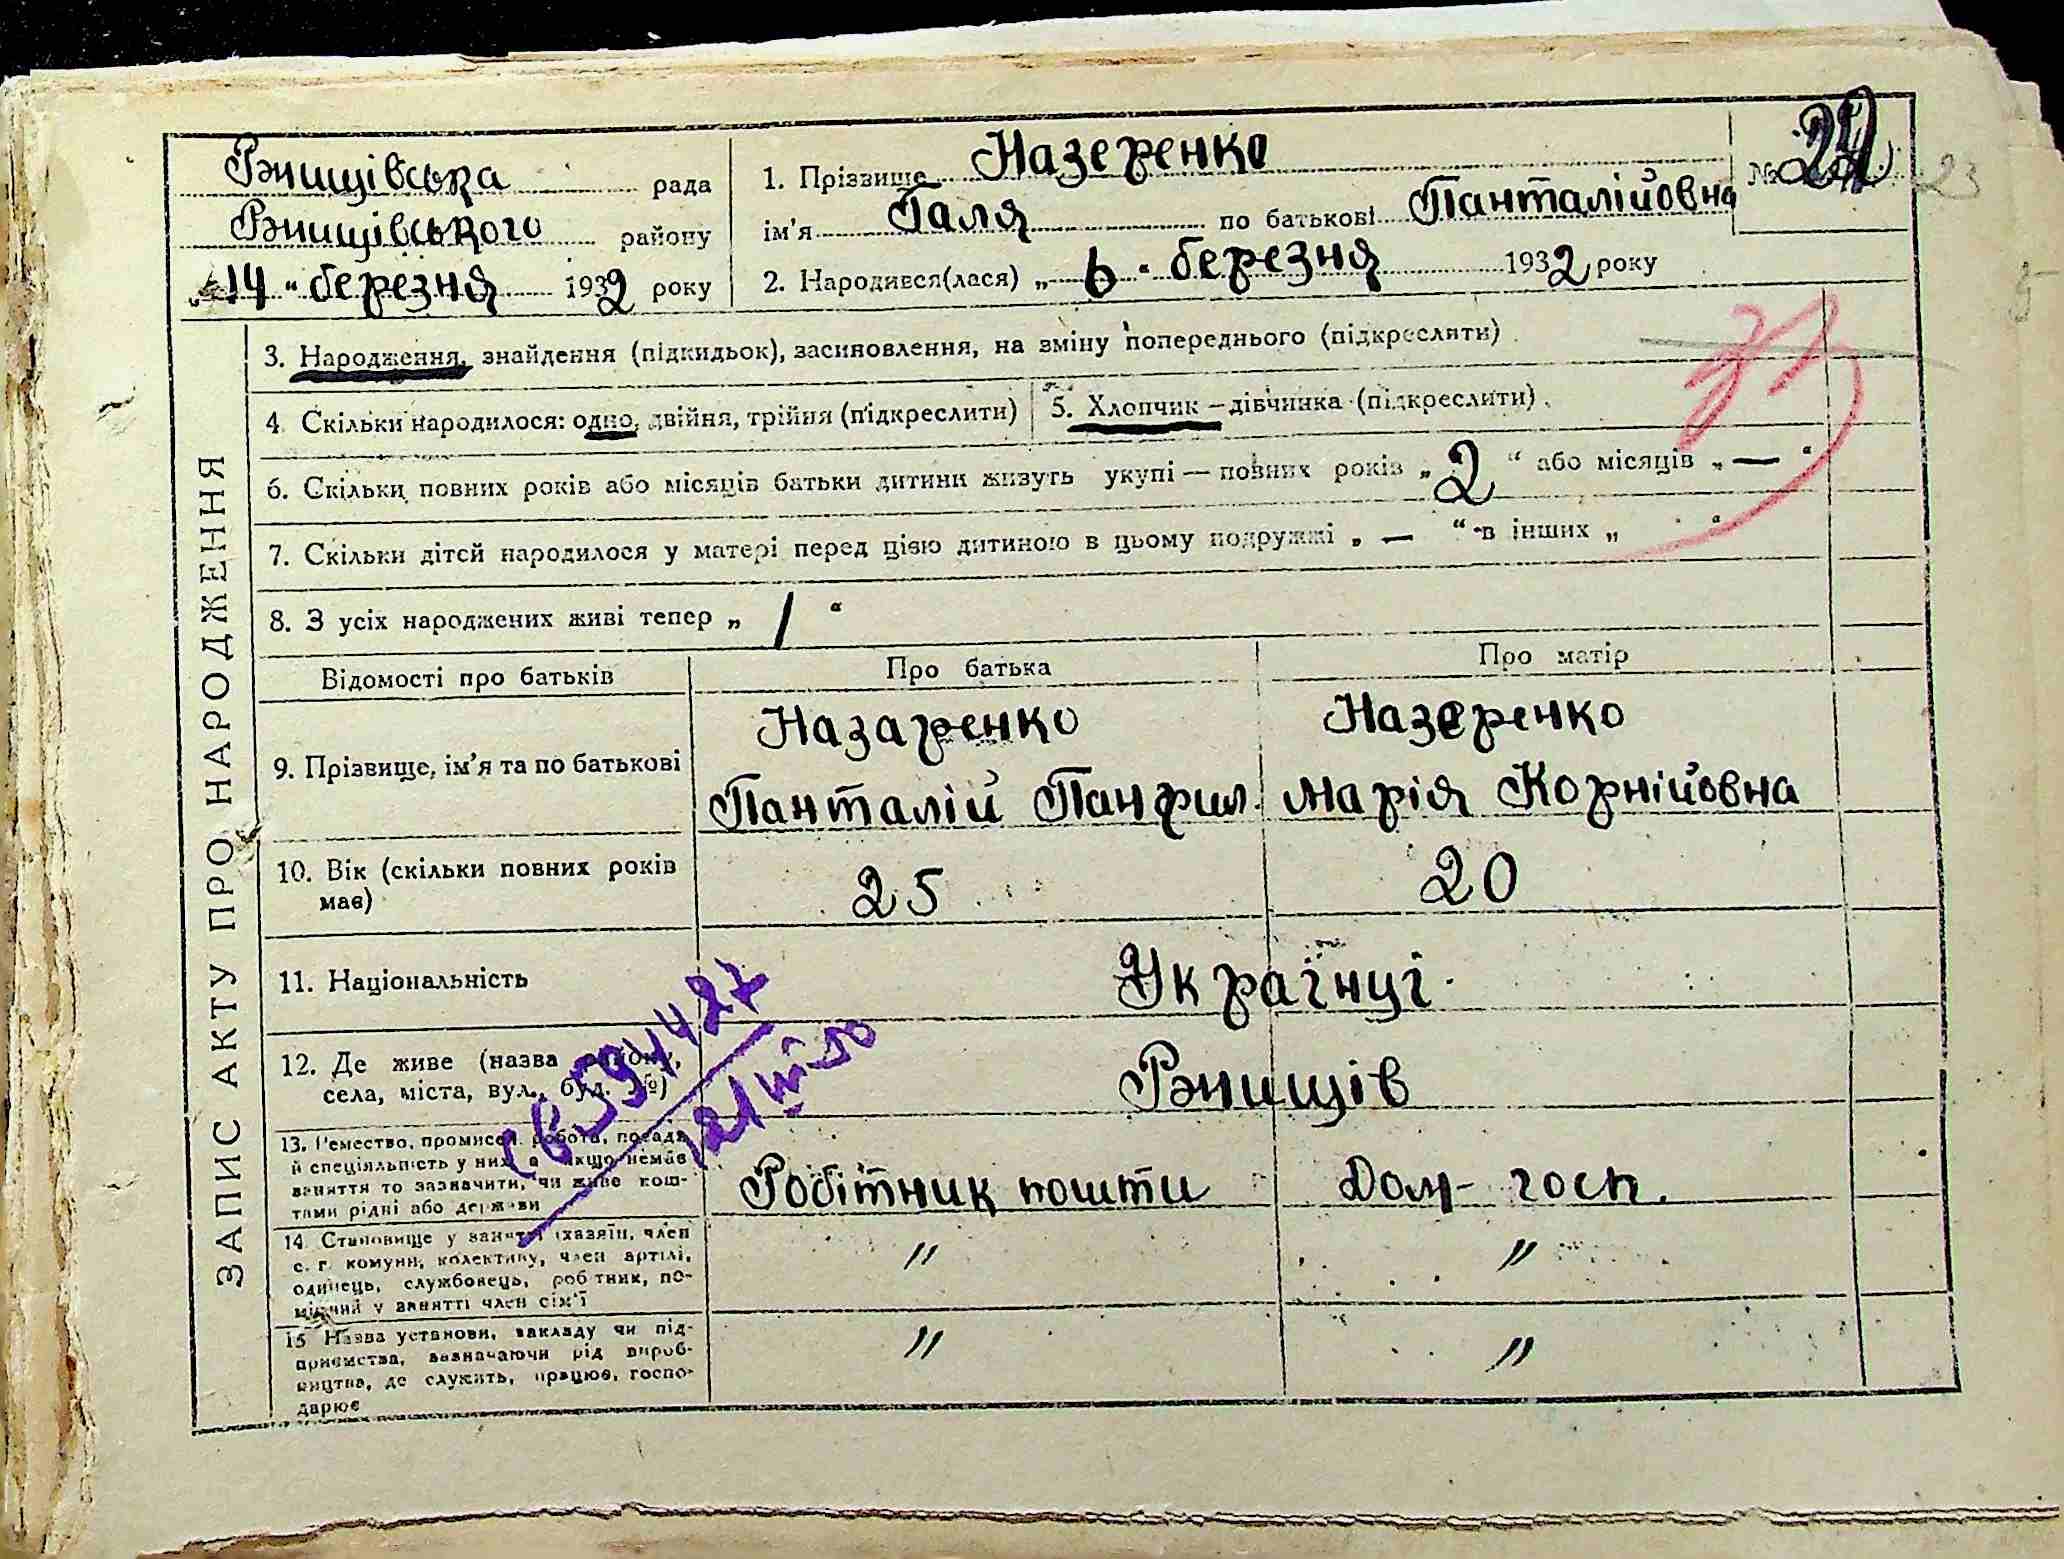 Ржищівська рада
Ржищівського району
„14“ березня 1932 року
1. Прізвище Назеренко
ім'я Галя по батькові Панталійовна
2. Народився(лася) „6“ березня 1932 року
№ 22
23
ЗАПИС АКТУ ПРО НАРОДЖЕННЯ
3. Народження, знайдення (підкидьок), засиновлення, на зміну попереднього (підкреслити)
4. Скільки народилося: одно, двійня, трійня (підкреслити)
5. Хлопчик – дівчинка (підкреслити).
6. Скільки повних років або місяців батьки дитини живуть укупі — повних років „2“ або місяців „—“
7. Скільки дітей народилося у матері перед цією дитиною в цьому подружжі „—“ в інших „ “
8. З усіх народжених живі тепер „1“
Відомості про батьків
Про батька
Про матір
9. Прізвище, ім'я та по батькові
Назаренко
Панталій Панфил.
Назеренко
Марія Корнійовна
10. Вік (скільки повних років
має)
25
20
11. Національність
Українці
12. Де живе (назва району,
села, міста, вул., буд. №)
Ржищів
13. Ремество, промисел, робота, посада
й спеціяльність у них, а якщо немає
заняття то зазначити, чи живе кош-
тами рідні або держави
Робітник пошти
Дом-госп.
14 Становище у занятті (хазяїн, член
с. г. комуни, колективу, член артілі,
одинець, службовець, робітник, по-
мічний у занятті член сім'ї
"
"
15 Назва установи, закладу чи під-
приємства, зазначаючи рід вироб-
ництва, де служить, працює, госпо-
дарює
"
"